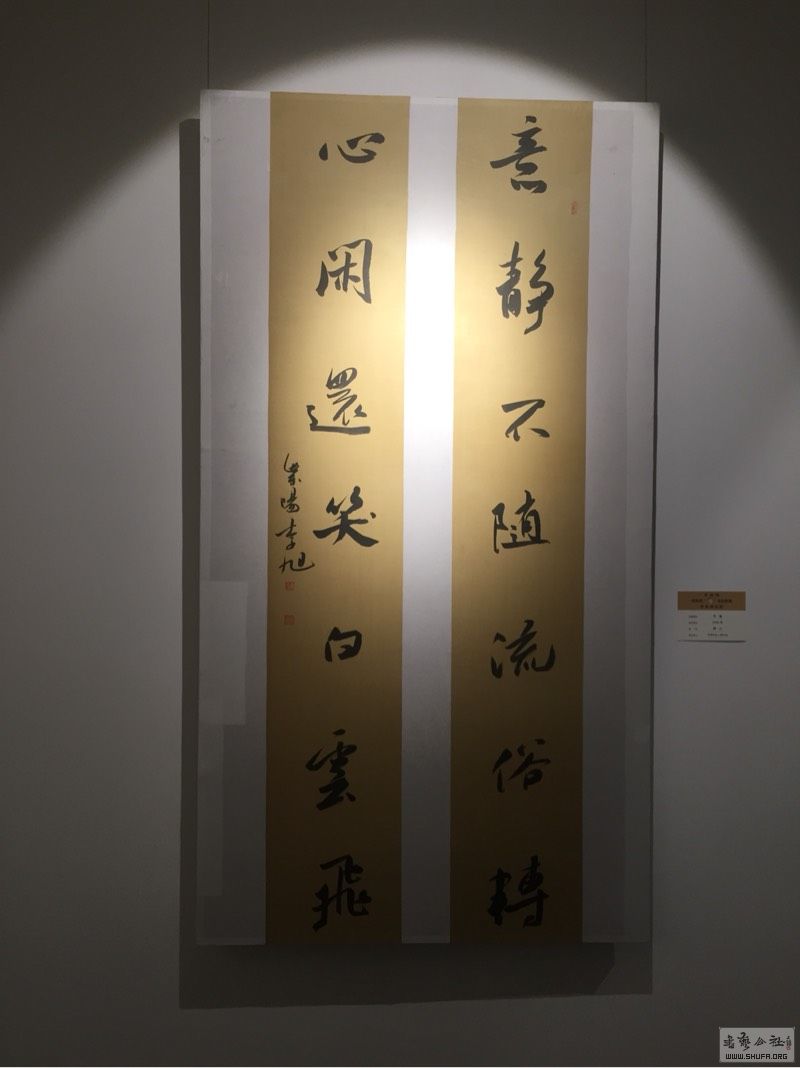 意静不随流俗轉
心闲還笑白雲飛
李旭
書藝公社
WWW.SHUFA.ORG